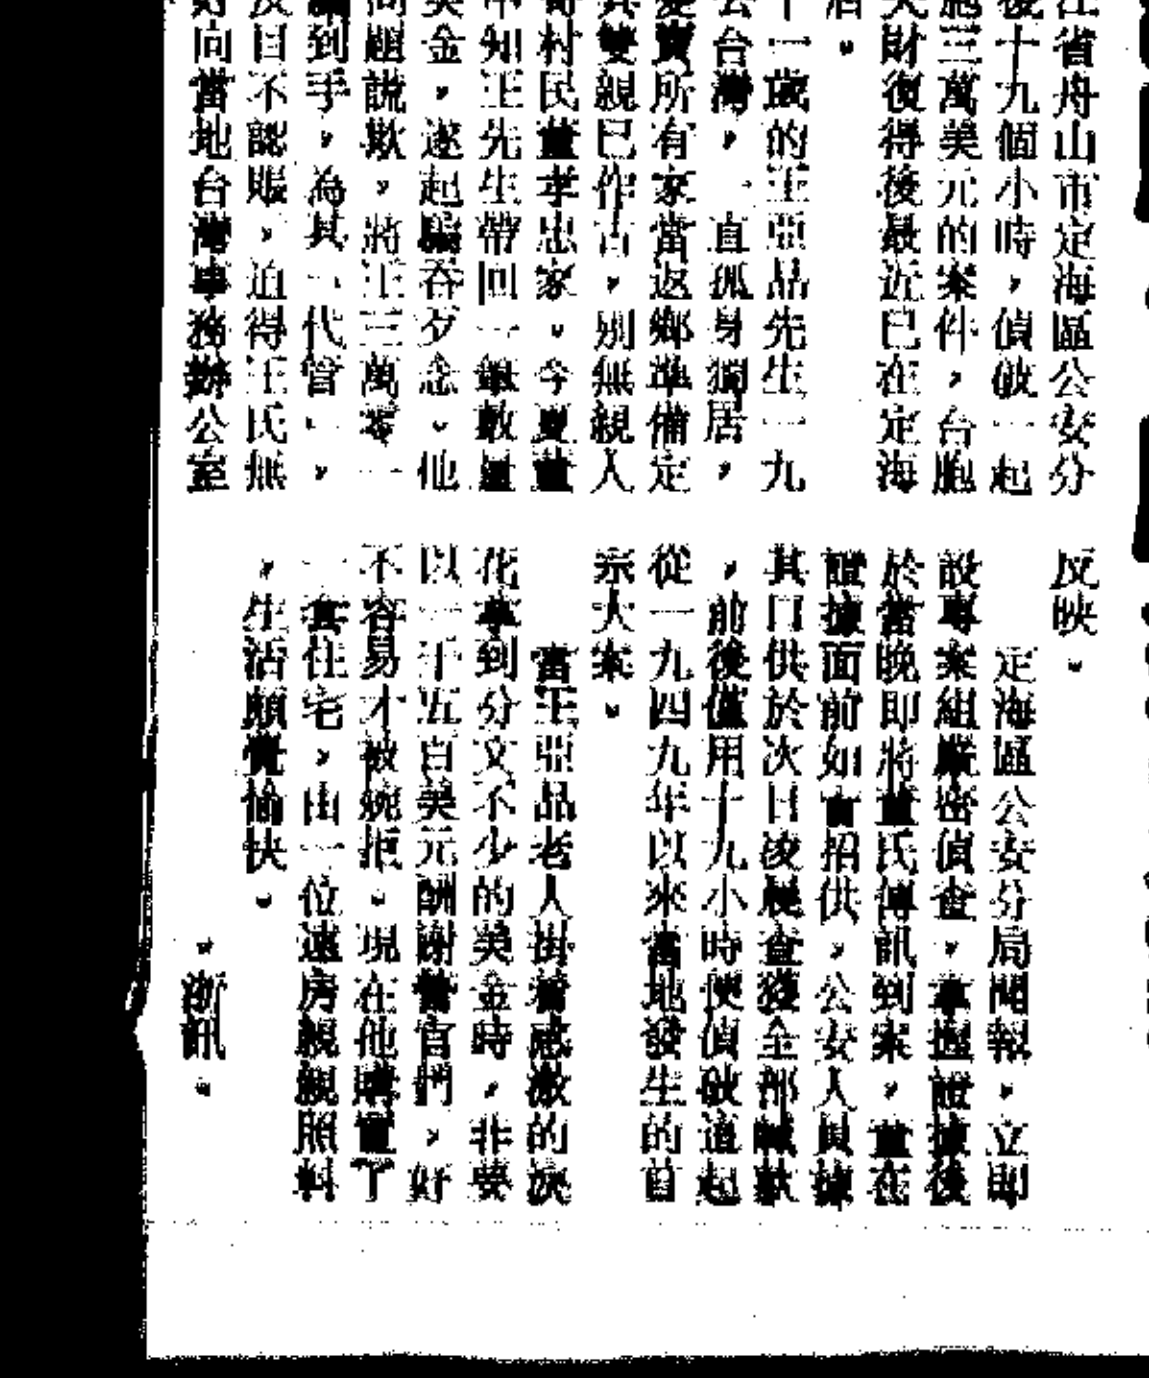 江省舟山市定海區公安分
後十九個小時，偵破一起
胞三萬美元的案件，台胞
失財復得後最近已在定海
居。
十一歲的王亞品先生一九
去台灣，一直孤身獨居，
變賣所有家當返鄉準備定
其雙親已作古，別無親人
寄村民董孝忠家。今夏董
中知王先生帶回一銀數量
美金，遂起騙吞歹念。他
問題謊欺，將王三萬零一
騙到手，為其「代管」，
反目不認賬，迫得王氏無
好向當地台灣事務辦公室
反映。
定海區公安分局聞報，立即
設專案組嚴密偵查，掌握證據後
於當晚即將董氏傳訊到案，董在
證據面前如實招供，公安人員據
其口供於次日凌晨查獲全部贓款
，前後僅用十九小時便偵破這起
從一九四九年以來當地發生的首
宗大案。
當王亞品老人掛着感激的淚
花拿到分文不少的美金時，非要
以一千五百美元酬謝警官們，好
不容易才被婉拒。現在他購置了
一套住宅，由一位遠房親親照料
，生活頗覺愉快。
・浙訊・